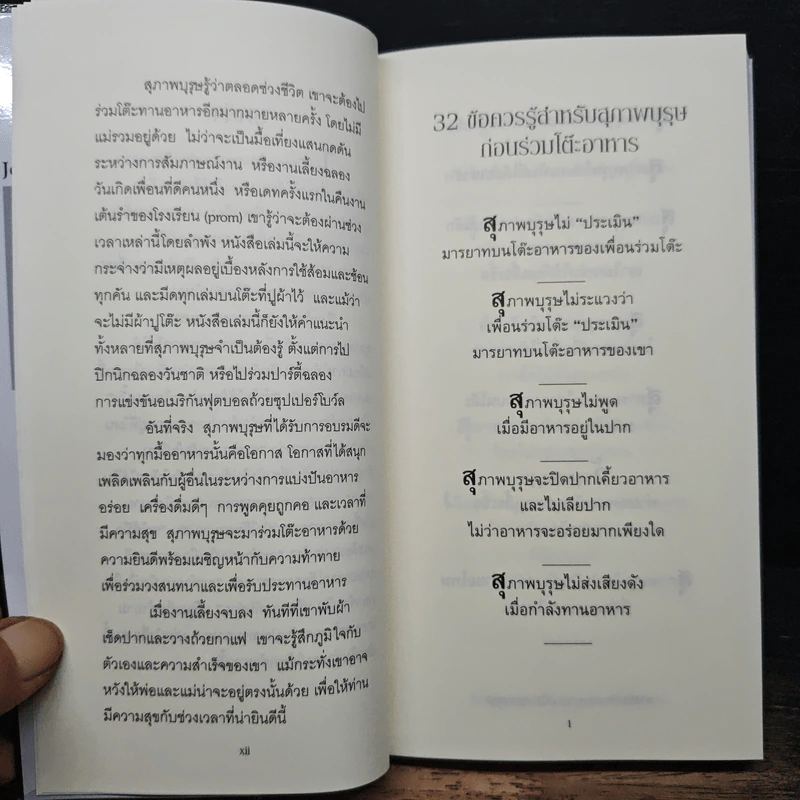 สุภาพบุรุษรู้ว่าตลอดช่วงชีวิต เขาจะต้องไป
ร่วมโต๊ะทานอาหารอีกมากมายหลายครั้ง โดยไม่มี
แม่รวมอยู่ด้วย ไม่ว่าจะเป็นมื้อเที่ยงแสนกดดัน
ระหว่างการสัมภาษณ์งาน หรืองานเลี้ยงฉลอง
วันเกิดเพื่อนที่ดีคนหนึ่ง หรือเดทครั้งแรกในคืนงาน
เต้นรำของโรงเรียน (prom) เขารู้ว่าจะต้องผ่านช่วง
เวลาเหล่านี้โดยลำพัง หนังสือเล่มนี้จะให้ความ
กระจ่างว่ามีเหตุผลอยู่เบื้องหลังการใช้ส้อมและช้อน
ทุกคัน และมีดทุกเล่มบนโต๊ะที่ปูผ้าไว้ และแม้ว่า
จะไม่มีผ้าปูโต๊ะ หนังสือเล่มนี้ก็ยังให้คำแนะนำ
ทั้งหลายที่สุภาพบุรุษจำเป็นต้องรู้ ตั้งแต่การไป
ปิกนิกฉลองวันชาติ หรือไปร่วมปาร์ตี้ฉลอง
การแข่งขันอเมริกันฟุตบอลถ้วยซุปเปอร์โบว์ล
อันที่จริง สุภาพบุรุษที่ได้รับการอบรมดีจะ
มองว่าทุกมื้ออาหารนั้นคือโอกาส โอกาสที่ได้สนุก
เพลิดเพลินกับผู้อื่นในระหว่างการแบ่งปันอาหาร
อร่อย เครื่องดื่มดีๆ การพูดคุยถูกคอ และเวลาที่
มีความสุข สุภาพบุรุษจะมาร่วมโต๊ะอาหารด้วย
ความยินดีพร้อมเผชิญหน้ากับความท้าทาย
เพื่อร่วมวงสนทนาและเพื่อรับประทานอาหาร
เมื่องานเลี้ยงจบลง ทันทีที่เขาพับผ้า
เช็ดปากและวางถ้วยกาแฟ เขาจะรู้สึกภูมิใจกับ
ตัวเองและความสำเร็จของเขา แม้กระทั่งเขาอาจ
หวังให้พ่อและแม่น่าจะอยู่ตรงนั้นด้วย เพื่อให้ท่าน
มีความสุขกับช่วงเวลาที่น่ายินดีนี้
xii
32 ข้อควรรู้สำหรับสุภาพบุรุษ
ก่อนร่วมโต๊ะอาหาร
สุภาพบุรุษไม่ “ประเมิน”
มารยาทบนโต๊ะอาหารของเพื่อนร่วมโต๊ะ
สุภาพบุรุษไม่ระแวงว่า
เพื่อนร่วมโต๊ะ “ประเมิน”
มารยาทบนโต๊ะอาหารของเขา
สุภาพบุรุษไม่พูด
เมื่อมีอาหารอยู่ในปาก
สุภาพบุรุษจะปิดปากเคี้ยวอาหาร
และไม่เลียปาก
ไม่ว่าอาหารจะอร่อยมากเพียงใด
สุภาพบุรุษไม่ส่งเสียงดัง
เมื่อกำลังทานอาหาร
1